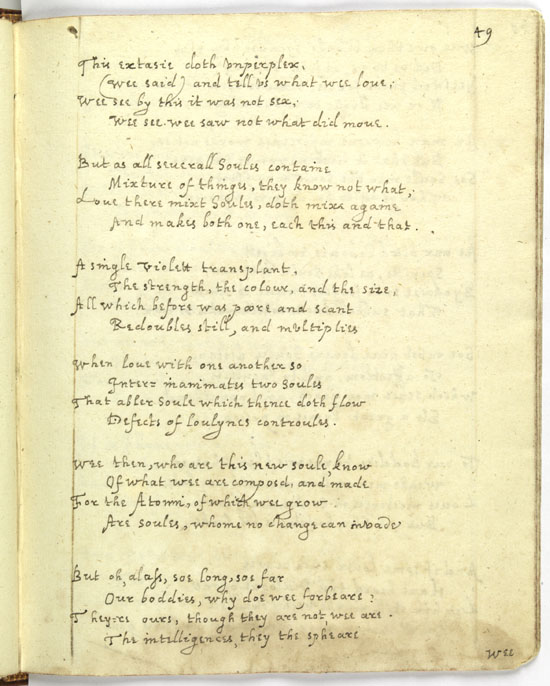 49
This extasie doth vnperplex,
(wee said) and tell vs what wee loue,
Wee see by this it was not sex,
Wee see wee saw not what did moue.
But as all seuerall Soules containe
Mixture of things, they know not what,
Loue there mixt Soules, doth mixe againe
And makes both one, each this and that.
A single violett transplant,
The strength, the colour, and the size,
All which before was poore and scant
Redoubles still, and multiplies
When loue with one another so
Inter=inanimates two Soules
That abler Soule which thence doth flow
Defects of loulynes controules.
Wee then, who are this new soule, know
Of what wee are composd, and made
For the Atomi, of which wee grow
Are soules, whome no change can invade
But oh, alass, soe long, soe far
Our boddies, why doe wee forbeare?
They're ours, though they are not wee are.
The intelligences, they the spheare
wee